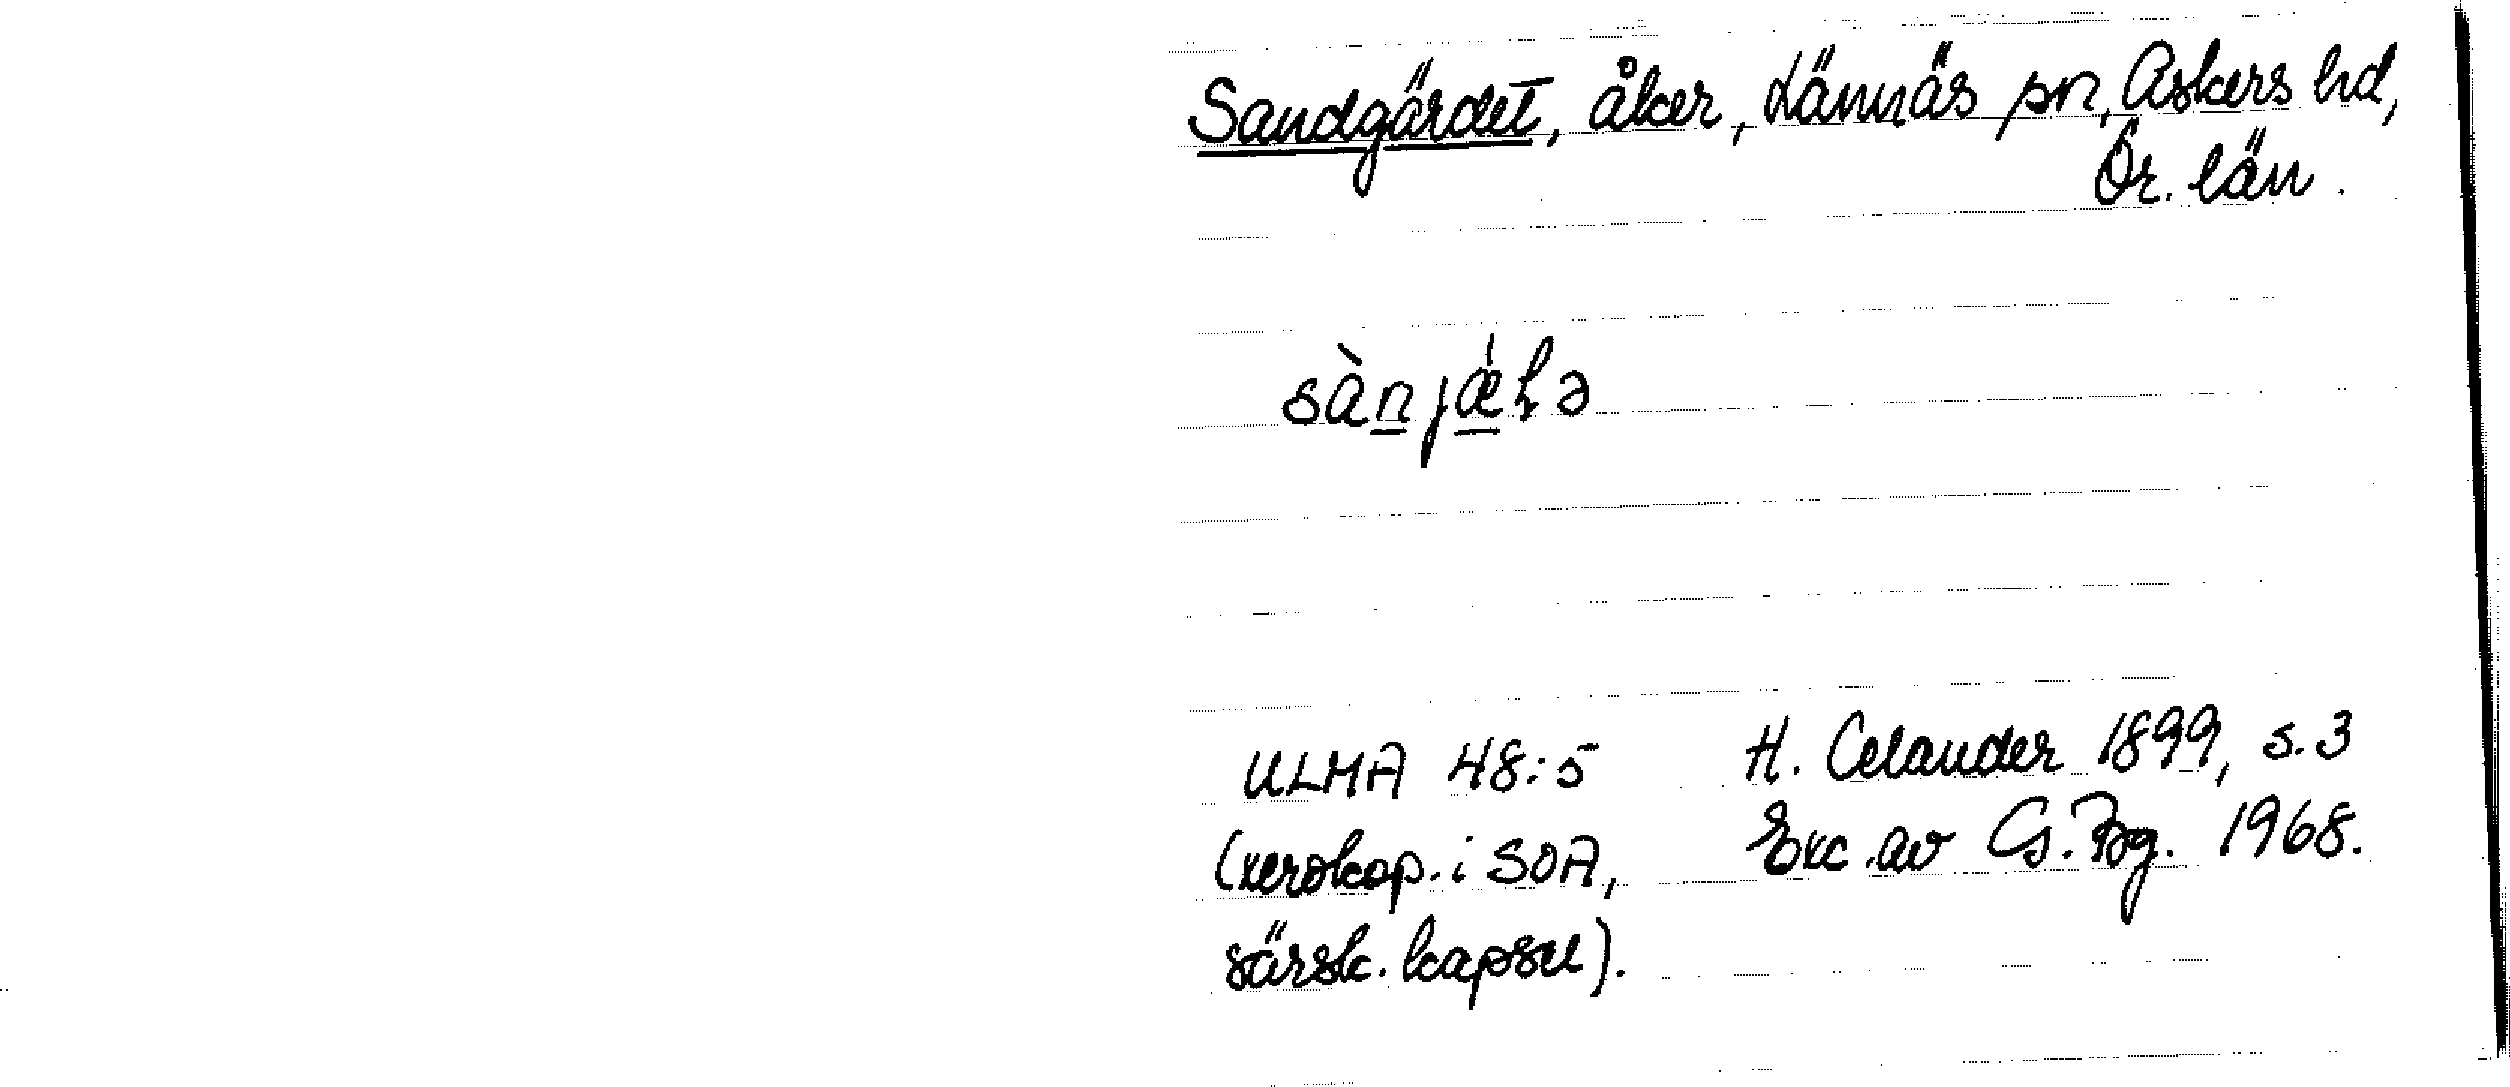 Sandgärdet, åker, Lännäs sn, Askers hd,
Ör. län.
sànjǽɫə
ULMA 48:5 H. Celander 1899, s. 3
(xerokop. i SOA, Exc. av G. Bg. 1968.
särsk. kapsel).